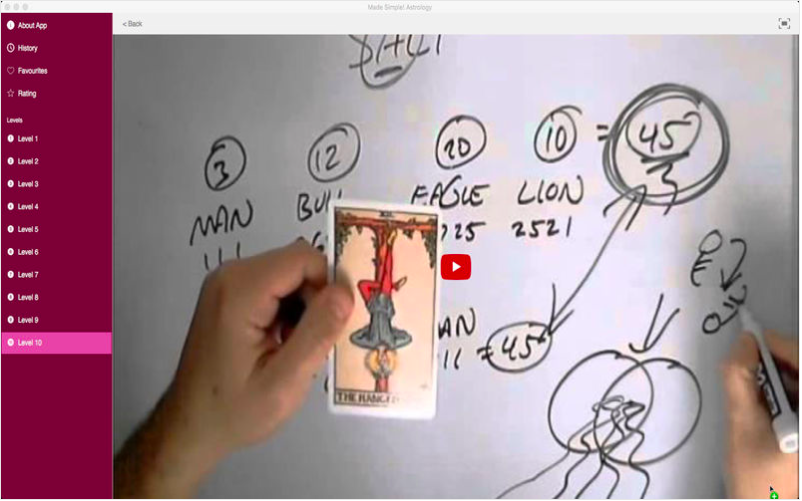 Made Simple! Astrology
About App
< Back
History
Favourites
Rating
Levels
Level 1
Level 2
Level 3
Level 4
Level 5
Level 6
Level 7
Level 8
Level 9
Level 10
3 12 20 10 = 45
MAN BULL EAGLE LION
111 25 2521
AN
11 = 45
XII
THE HANGED